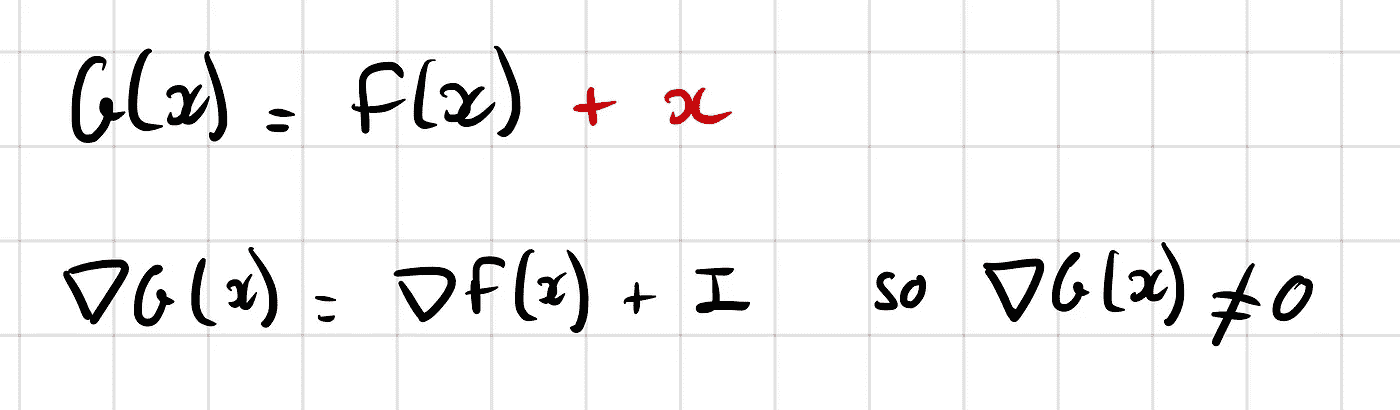 G(x) = F(x) + x
∇G(x) = ∇F(x) + I so ∇G(x) ≠ 0